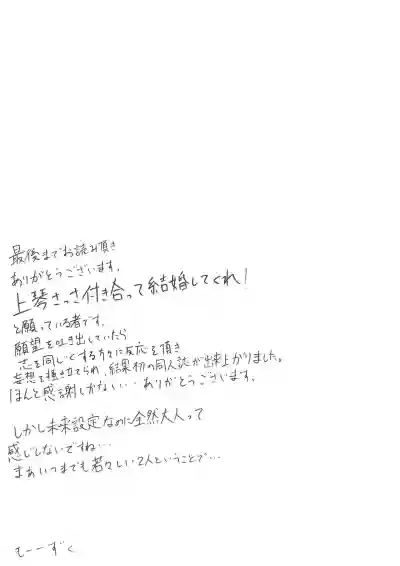 最後までお読み頂き
ありがとうございます。
上琴さっさ付き合って結婚してくれ!
と願っている者です。
願望を吐き出していたら
志を同じくする方々に反応を頂き
妄想を掻き立てられ、結果初の同人誌が出来上がりました。
ほんと感謝しかない・・ありがとうございます。
しかし未来設定なのに全然大人って
感じしないですね…
まあいつまでも若々しい2人ということで…
むーーずく